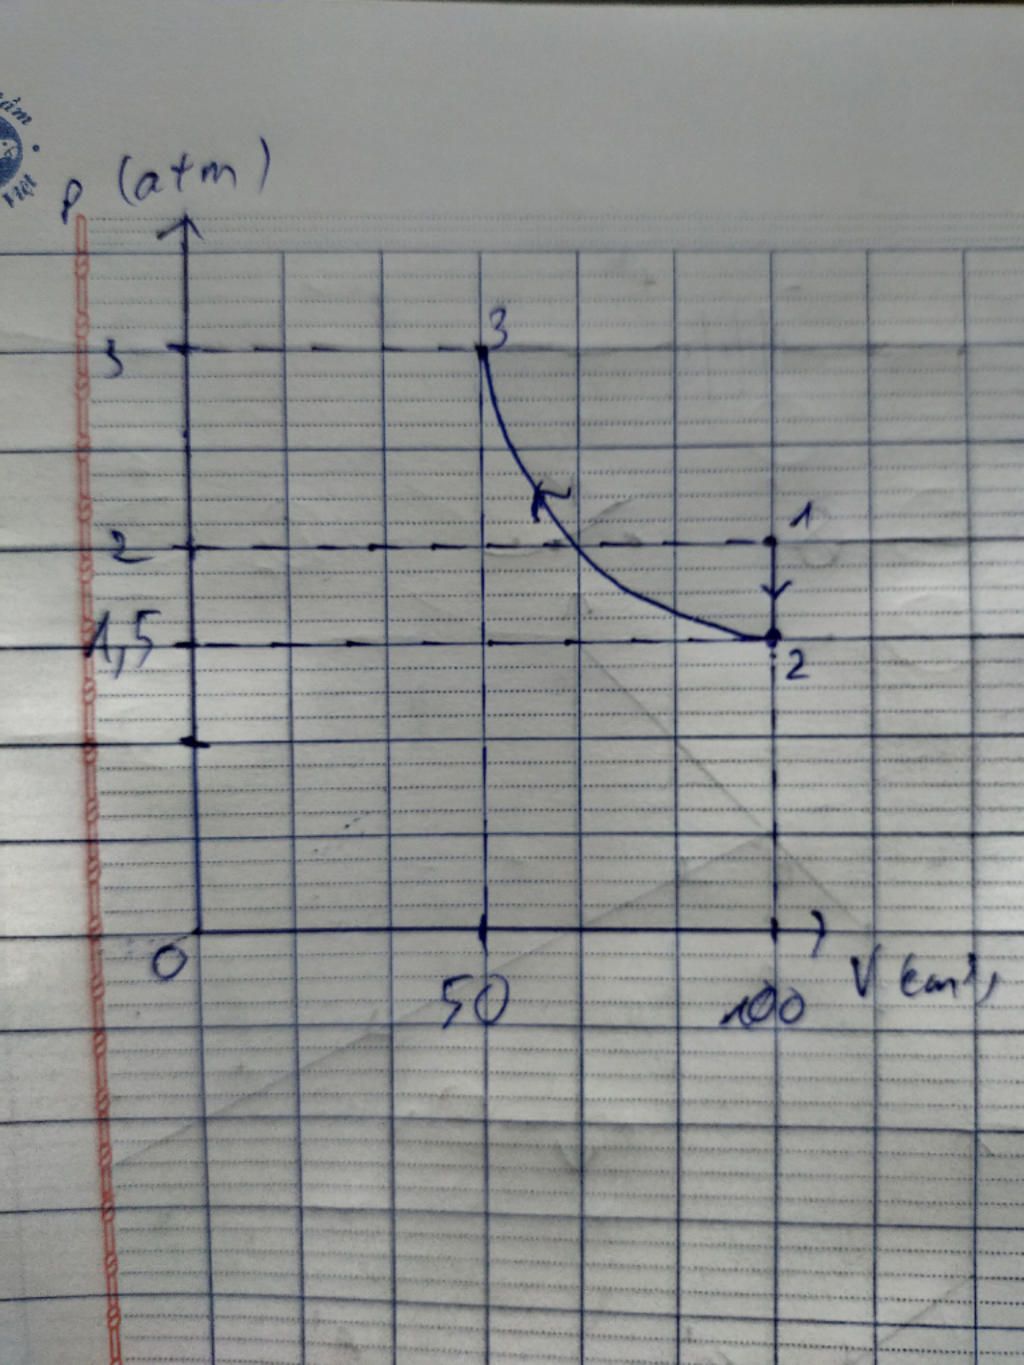 P (atm)
3
3
1
2
1,5
2
0
50
100
V (cm³)